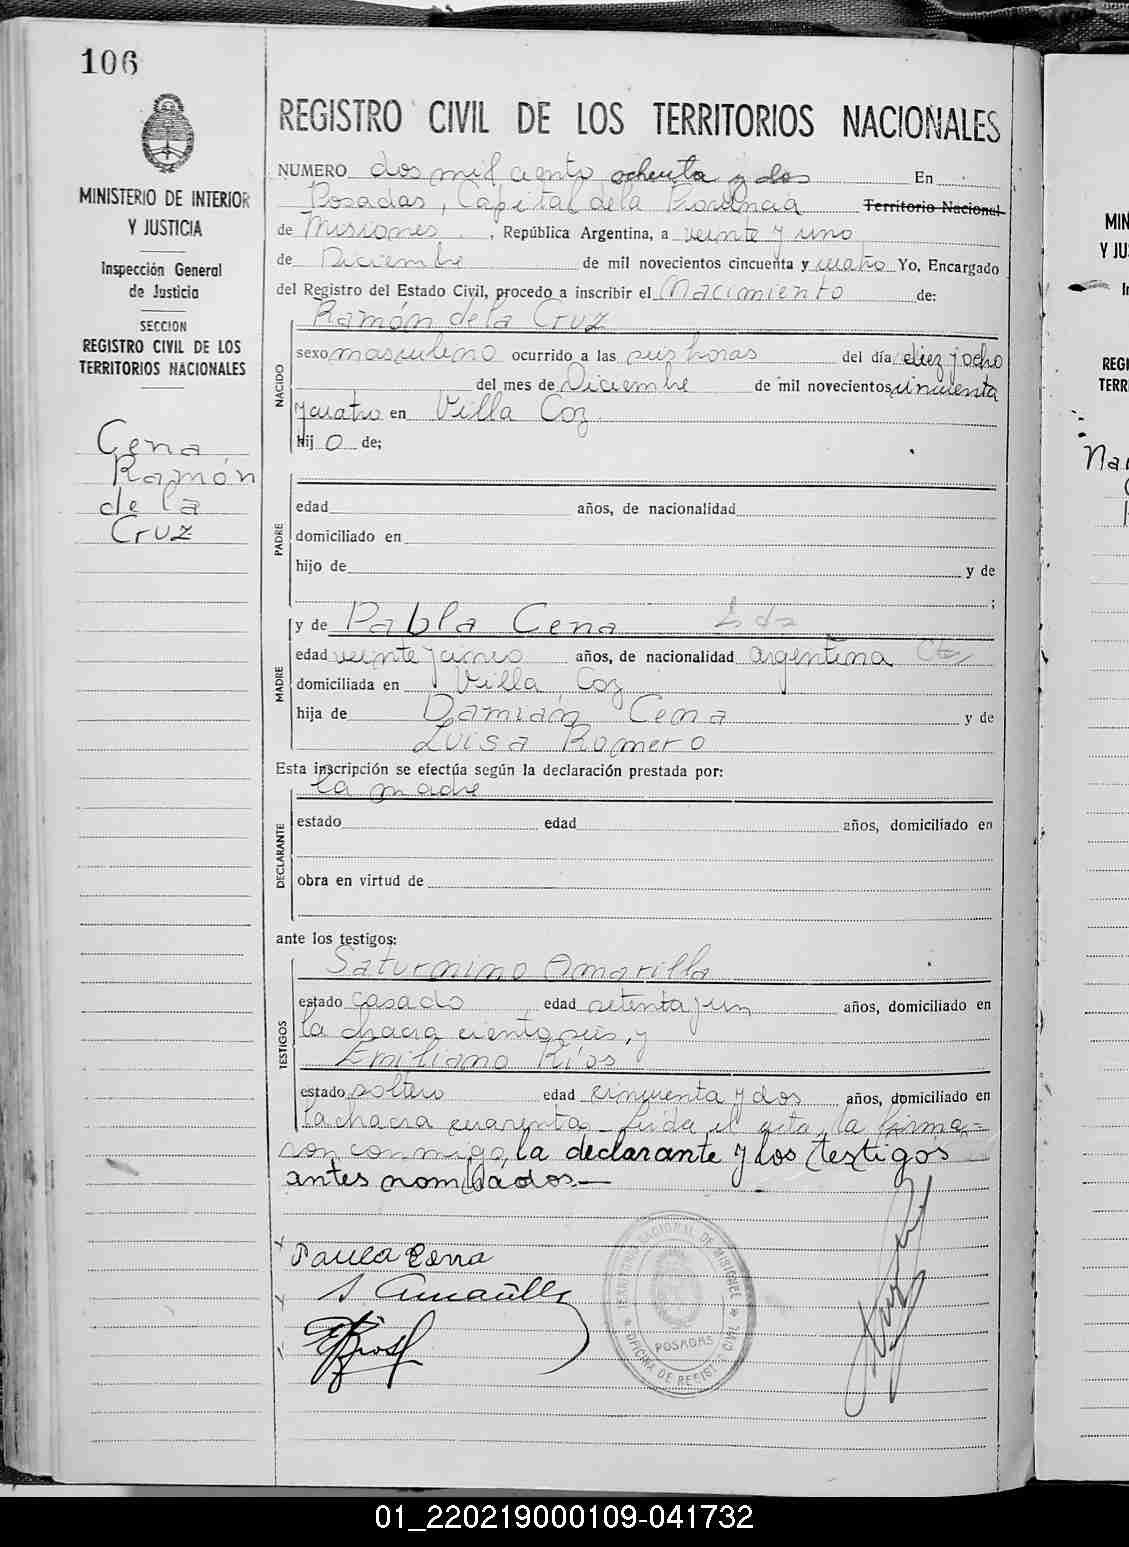 106
MINISTERIO DE INTERIOR
Y JUSTICIA
Inspección General
de Justicia
SECCION
REGISTRO CIVIL DE LOS
TERRITORIOS NACIONALES
Cena
Ramón
de la
Cruz
REGISTRO CIVIL DE LOS TERRITORIOS NACIONALES
NUMERO dos mil ciento ochenta y dos En
Posadas, Capital de la Provincia Territorio Nacional
de Misiones, República Argentina, a veinte y uno
de Diciembre de mil novecientos cincuenta y cuatro Yo, Encargado
del Registro del Estado Civil, procedo a inscribir el Nacimiento de:
Ramón de la Cruz
NACIDO
sexo masculino ocurrido a las seis horas del día diez y ocho
del mes de Diciembre de mil novecientos cincuenta
y cuatro en Villa Coz
hijo de;
PADRE
edad años, de nacionalidad
domiciliado en
hijo de y de
;
y de Pabla Cena
MADRE
edad veinte y cinco años, de nacionalidad argentina
domiciliada en Villa Coz
hija de Damian Cena y de
Luisa Romero
Esta inscripción se efectúa según la declaración prestada por:
la madre
DECLARANTE
estado edad años, domiciliado en
obra en virtud de
ante los testigos:
Saturnino Amarilla
TESTIGOS
estado casado edad setenta y un años, domiciliado en
la chacra ciento seis, y
Emiliano Ríos
estado soltero edad cincuenta y dos años, domiciliado en
la chacra cuarenta. Leida el acta, la firma=
ron conmigo, la declarante y los testigos
antes nombrados.—
Paula Cena
S Amarilla
ERios
TERRITORIO NACIONAL DE MISIONES
POSADAS
OFICINA DE REGIST. CIVIL
MIN
Y JU
REGI
TERR
Na
01_220219000109-041732